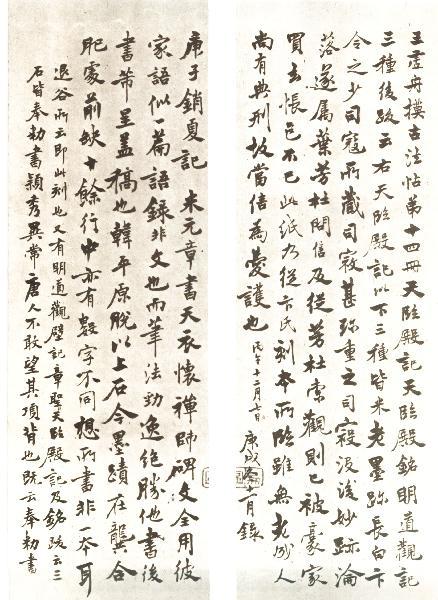 王虛舟模古法帖第十四冊天臨殿記天臨殿銘明道觀記
三種後跋云右天臨殿記以下三種皆米老墨跡長白卞
令之少司寇所藏司寇甚珍重之司寇沒後妙跡淪
落遂屬葉芳杜問信及從芳杜索觀則已被豪家
買去悵已不已此紙乃從卞氏刻本所臨雖無老成人
尚有典刑故當倍為愛護也 丙午十二月七日
庚戌冬十一月錄
庚子銷夏記 米元章書天衣懷禪師碑文全用彼
家語似一篇語錄非文也而筆法勁逸絕勝他書後
書芾呈蓋稿也韓平原脫以上石今墨蹟在龔合
肥處前缺十餘行中亦有數字不同想所書非一本耳
退谷所云即此刻也又有明道觀壁記章聖天臨殿記及銘跋云三
石皆奉勅書穎秀異常唐人不敢望其項背也既云奉勅書